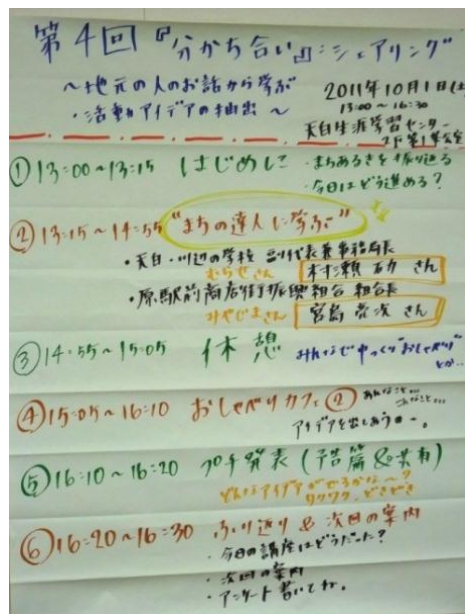 第4回『分かち合い』:シェアリング
〜地元の人のお話から学ぶ
・活動アイデアの抽出〜
2011年10月1日(土
13:00〜16:30
天白生涯学習センター
2F 第1集会室
①13:00〜13:15 はじめに
・まちあるきを振り返る
・今日はどう進める?
②13:15〜14:55 "まちの達人に学ぶ"
・天白・川辺の学校 副代表兼事務局長
むらせさん
村瀬 さん
・原駅前商店街振興組合 組合長
みやじまさん
宮島 さん
③14:55〜15:05 休憩 みんなでゆっくり"おしゃべり"
とか…
④15:05〜16:10 おしゃべりカフェ②
あんなこと…
こんなこと…
アイデアを出しあうヨ〜。
⑤16:10〜16:20 プチ発表(予告篇&共有)
どんなアイデアがでるかな〜?
ワクワク、どきどき
⑥16:20〜16:30 ふり返り & 次回の案内
・今日の講座はどうだった?
・次回の案内
・アンケート書いてね。